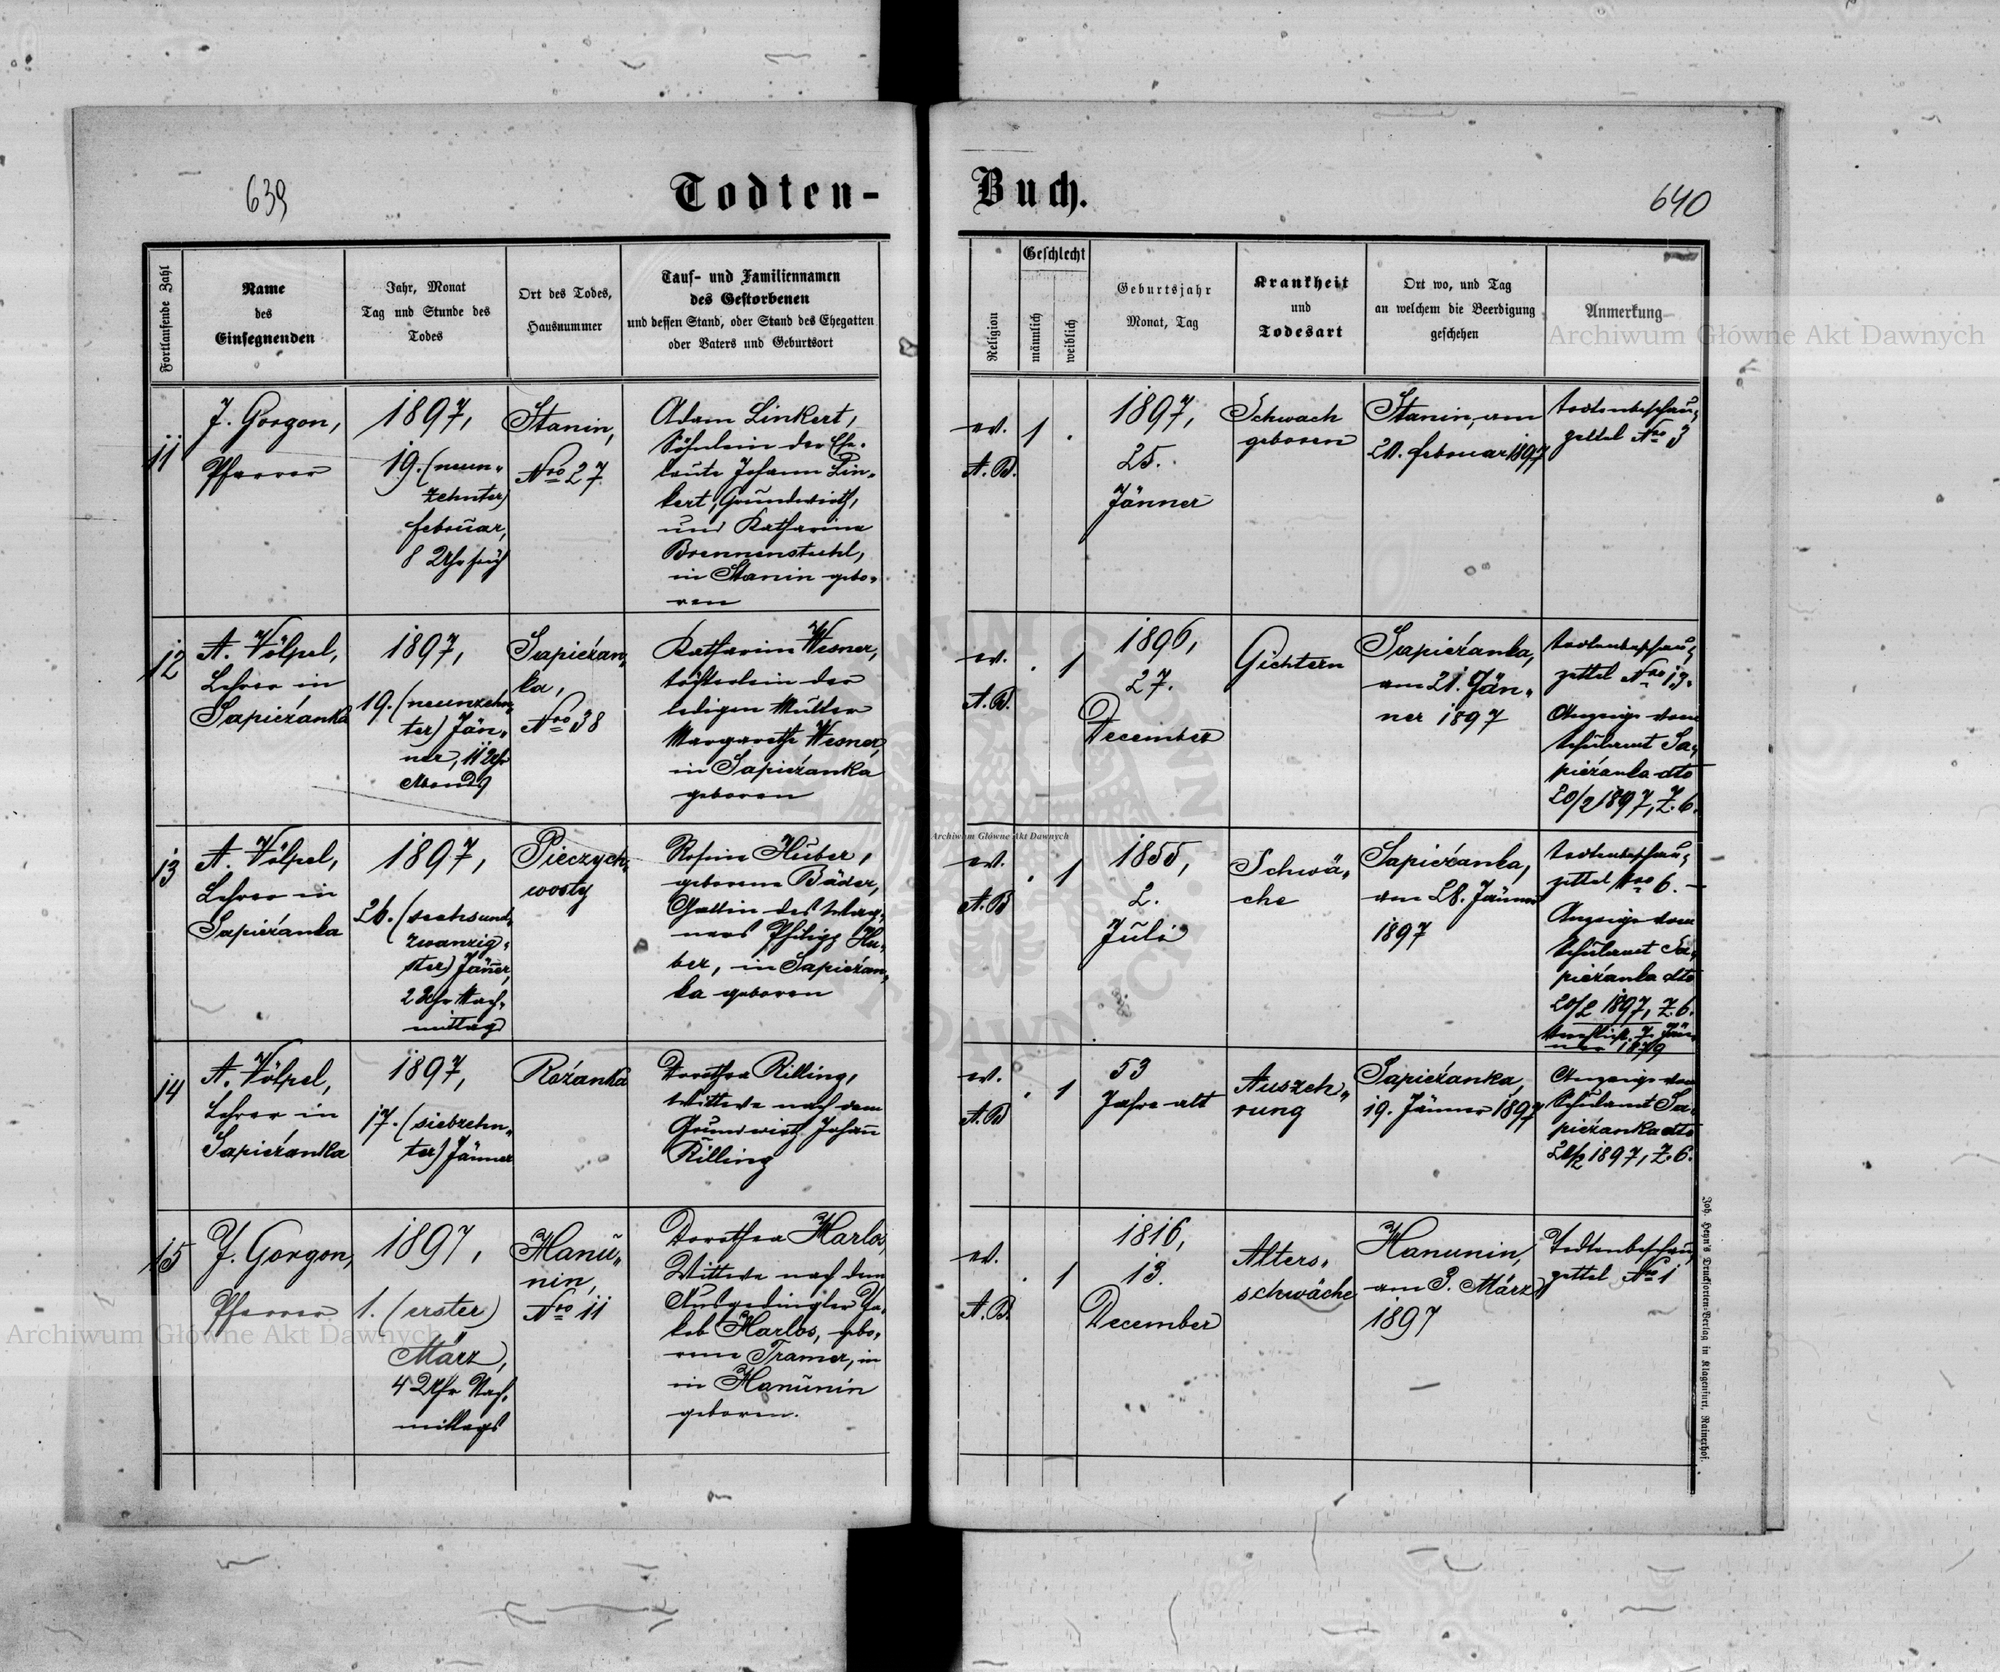 639
Todten-
Buch.
640
Fortlaufende Zahl
Name
des
Einsegnenden
Jahr, Monat
Tag und Stunde des
Todes
Ort des Todes,
Hausnummer
Tauf- und Familiennamen
des Gestorbenen
und dessen Stand, oder Stand des Ehegatten
oder Vaters und Geburtsort
Religion
Geschlecht
männlich
weiblich
Geburtsjahr
Monat, Tag
Krankheit
und
Todesart
Ort wo, und Tag
an welchem die Beerdigung
geschehen
Anmerkung
11
J. Gorgon,
Pfarrer
1897,
19. (neun-
zehnter)
februar,
8 Uhr früh
Stanin,
Nro 27
Adam Linkert,
Söhnlein der Ehe-
leute Johann Lin-
kert, Grundwirth,
und Katharina
Brennenstuhl,
in Stanin gebo-
ren
ev.
A. B.
1
.
1897,
25.
Jänner
Schwach
geboren
Stanin, am
21. februar 1897
todtenbeschau-
zettel Nro 3
12
A. Völpel,
Lehrer in
Sapieżanka
1897,
19. (neunzehn-
ter) Jän-
ner, 11 Uhr
Abends
Sapieżan-
ka,
Nro 38
Katharina Wesner,
töchterlein der
ledigen Mutter
Margarethe Wesner,
in Sapieżanka
geboren
ev.
A. B.
.
1
1896,
27.
December
Gichtern
Sapieżanka,
am 21. Jän-
ner 1897
todtenbeschau-
zettel Nro 13.
Anzeige vom
Schulamt Sa-
pieżanka dto
20/2 1897, Z. 6.
13
A. Völpel,
Lehrer in
Sapieżanka
1897,
26. (sechsund-
zwanzig-
ster) Jänner,
2 Uhr Nach-
mittag
Pieczych-
wosty
Rosina Huber,
geborene Bäder,
Gattin des Wag-
ners Philipp Hu-
ber, in Sapieżan-
ka geboren
ev.
A. B
.
1
1855,
2.
Juli
Schwä-
che
Sapieżanka,
am 28. Jänner
1897
todtenbeschau-
zettel Nro 6.
Anzeige vom
Schulamt Sa-
pieżanka dto
20/2 1897, Z. 6.
14
A. Völpel,
Lehrer in
Sapieżanka
1897,
17. (siebzehn-
ter) Jänner
Rożanka
Dorothea Rilling,
Wittwe nach dem
Grundwirth Johann
Rilling
ev.
A. B
.
1
53
Jahre alt
Auszeh-
rung
Sapieżanka,
19. Jänner 1897
Anzeige vom
Schulamt Sa-
pieżanka dto
20/2 1897, Z. 6.
15
J. Gorgon,
Pfarrer
1897,
1. (erster)
März,
4 Uhr Nach-
mittags
Hanu-
nin,
Nro 11
Dorothea Harlos,
Wittwe nach dem
Ausgedingler Ja-
kob Harlos, gebo-
rene Tramer, in
in Hanunin
geboren.
ev.
A. B.
.
1
1816,
13.
December
Alters-
schwäche
Hanunin,
am 3. März
1897
Todtenbeschau-
zettel Nro 1
Joh. Heyn's Drucksorten-Verlag in Klagenfurt, Rainerhof.
Archiwum Główne Akt Dawnych
Archiwum Główne Akt Dawnych
Archiwum Główne Akt Dawnych